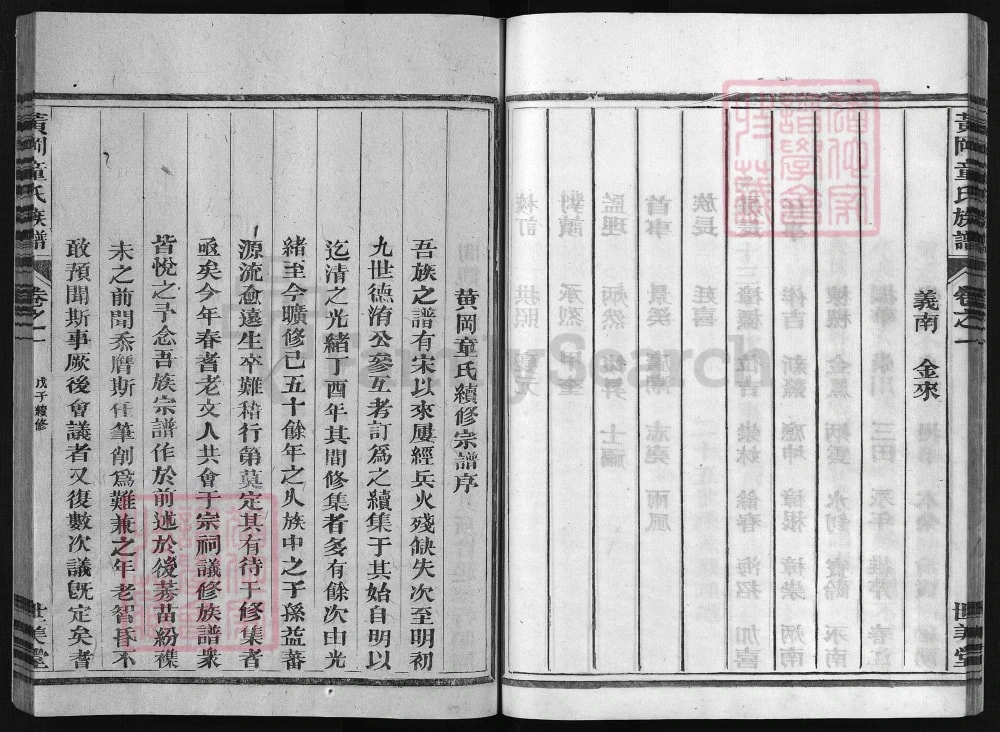 黃岡童氏族譜
卷之一
世美堂
義南 金來
黃岡童氏續修宗譜序
吾族之譜有宋以來屢經兵火殘缺失次至明初
九世德洧公參互考訂爲之續集于其始自明以
迄清之光緒丁酉年其間修集者多有餘次由光
緒至今曠修已五十餘年之久族中之子孫益蕃
源流愈遠生卒難稽行第莫定其有待于修集者
亟矣今年春耆老文人共會于宗祠議修族譜衆
皆悅之予念吾族宗譜作於前述於後蕚苗紛襍
未之前聞忝膺斯任筆削爲難兼之年老智昏不
敢預聞斯事厥後會議者又復數次議旣定矣耆
黃岡童氏族譜
卷之一
戊子續修
世美堂
FamilySearch